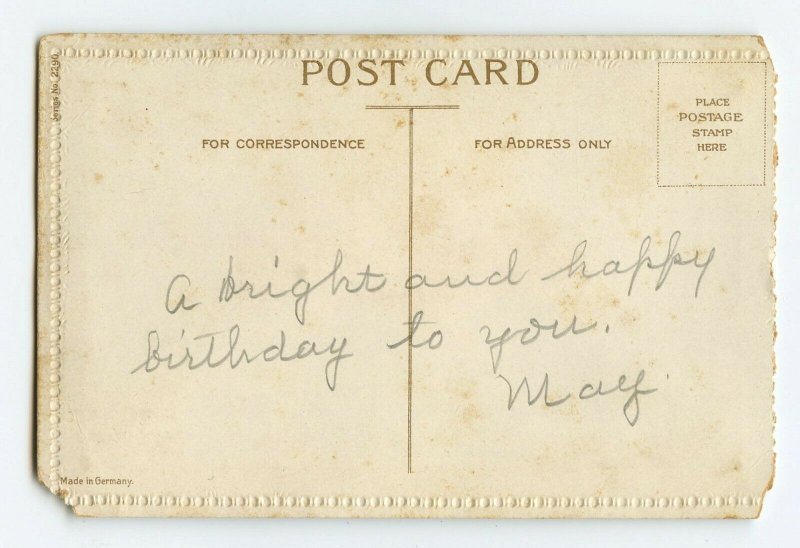 POST CARD
FOR CORRESPONDENCE
FOR ADDRESS ONLY
PLACE
POSTAGE
STAMP
HERE
A bright and happy
birthday to you.
May.
Made in Germany.
No. 2290